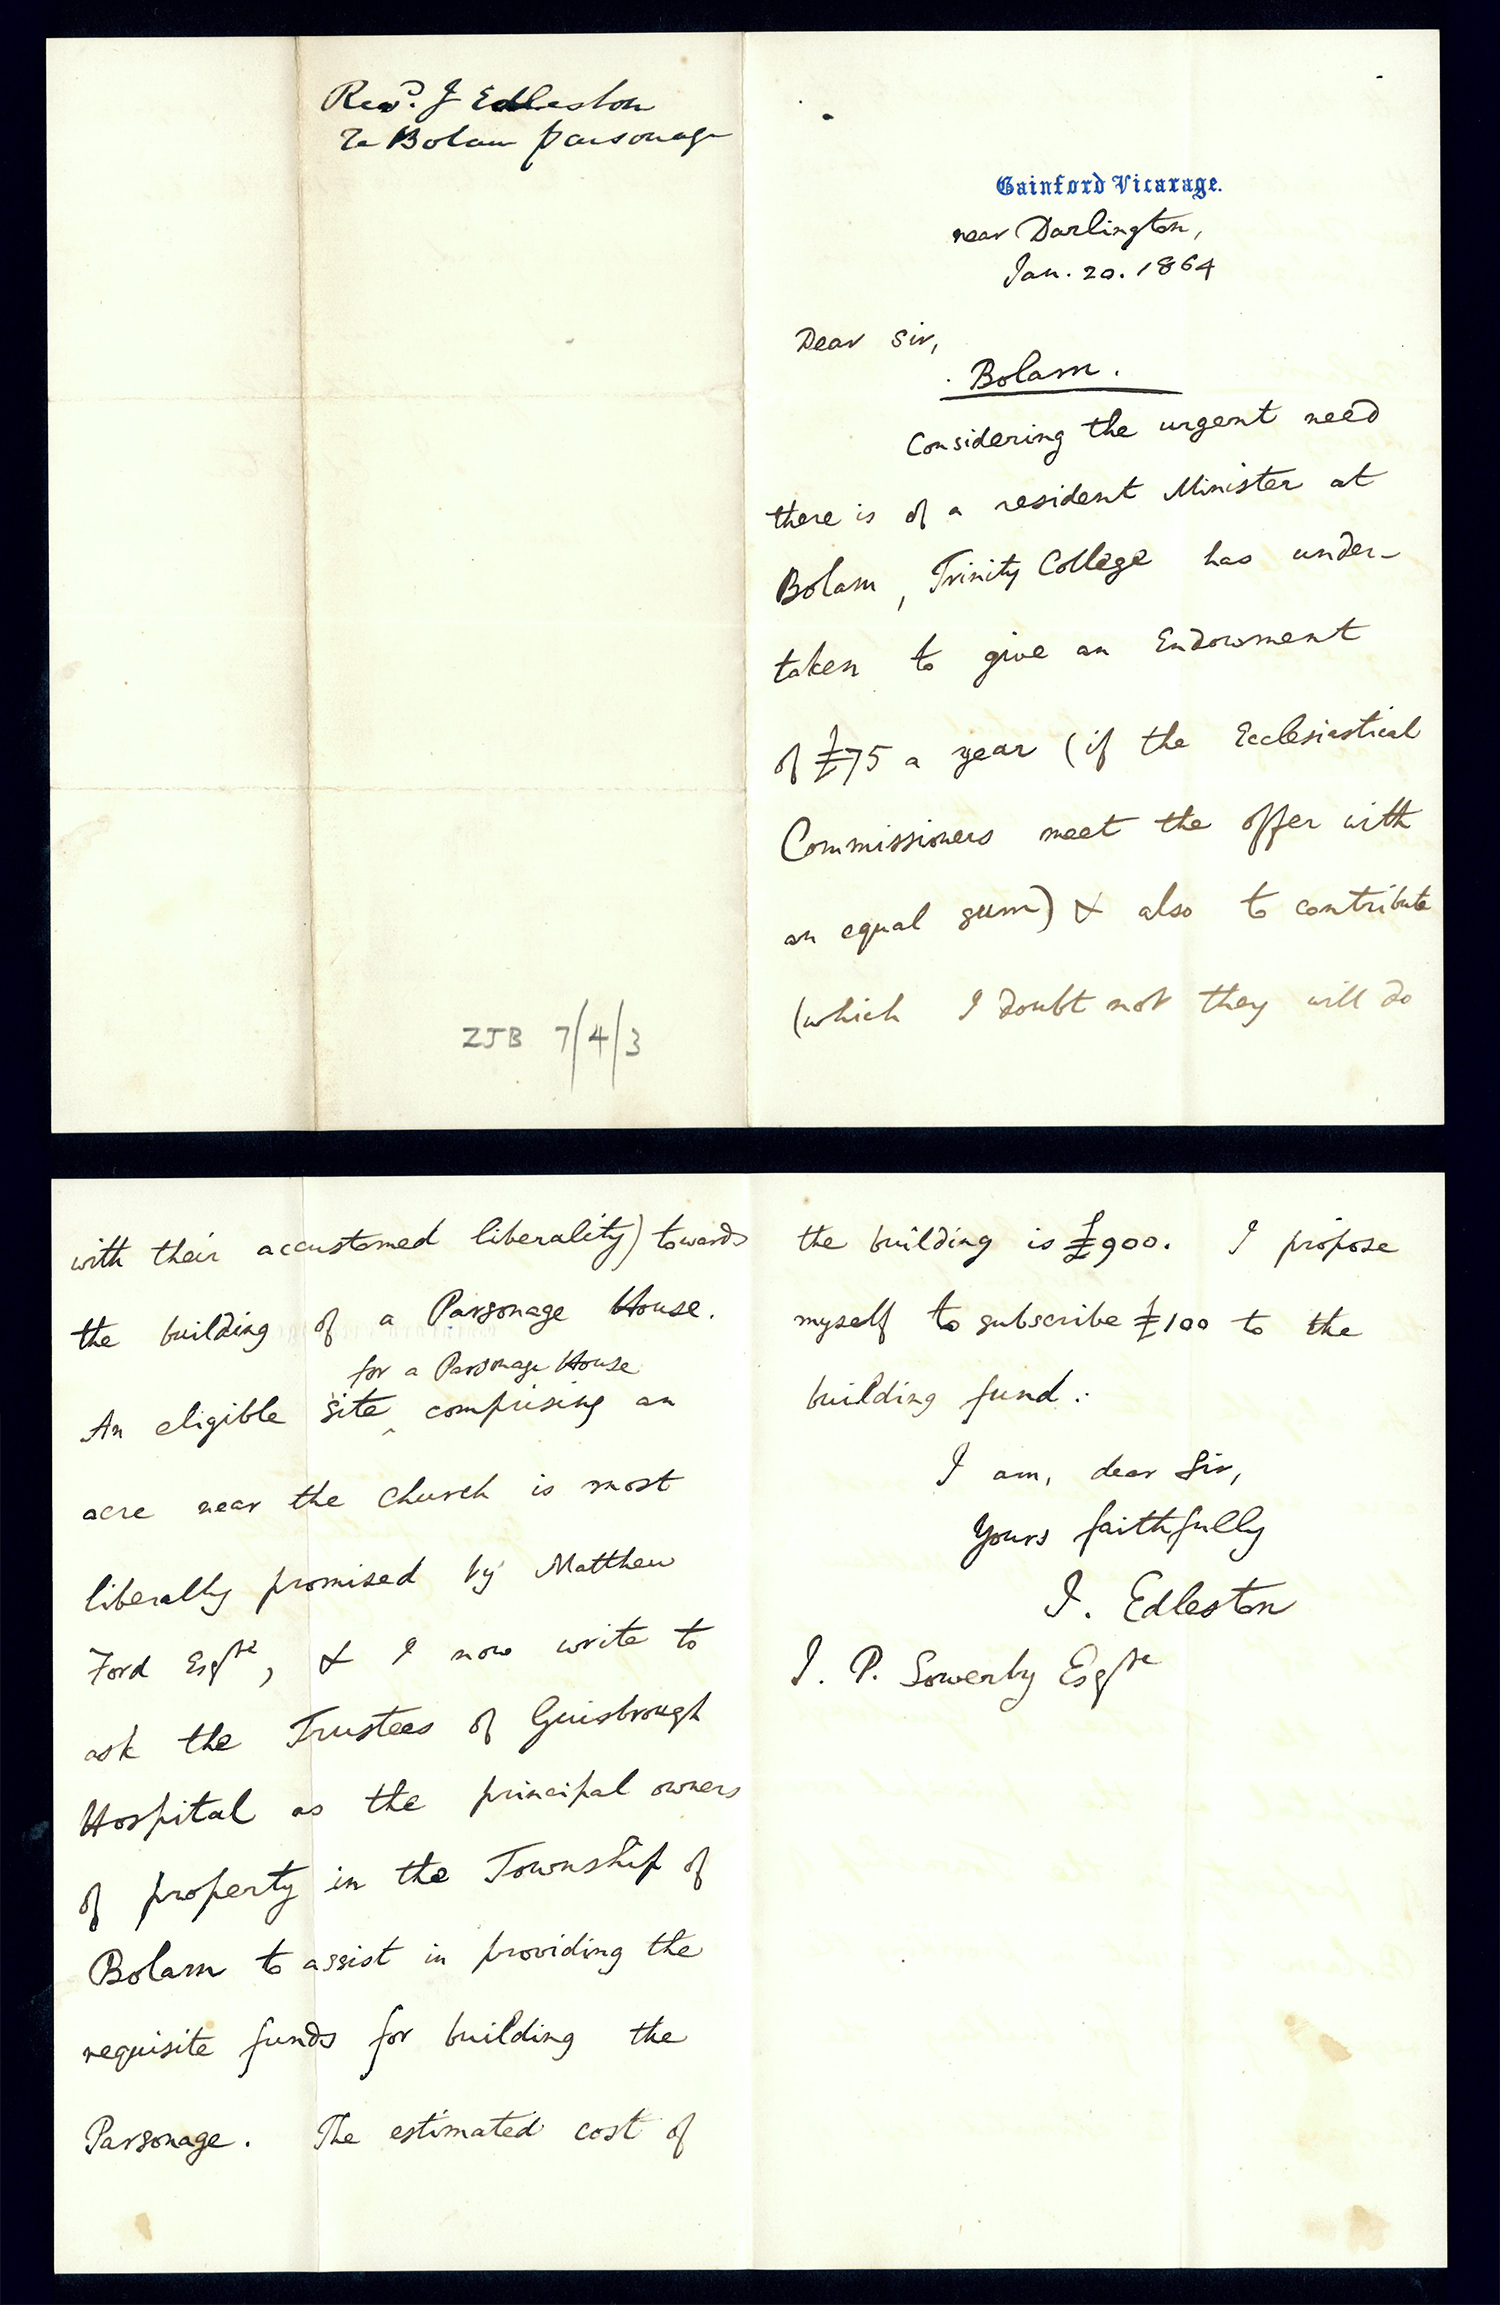 Revd. J Edleston
Re Bolam parsonage
ZJB 7/4/3
Gainford Vicarage.
near Darlington,
Jan. 20. 1864
Dear Sir,
Bolam.
Considering the urgent need
there is of a resident Minister at
Bolam, Trinity College has under-
taken to give an Endowment
of £75 a year (if the Ecclesiastical
Commissioners meet the offer with
an equal sum) & also to contribute
(which I doubt not they will do
with their accustomed liberality) towards
the building of a Parsonage House.
for a Parsonage House
An eligible site ‸ comprising an
acre near the church is most
liberally promised by Matthew
Ford Esqre, & I now write to
ask the Trustees of Guisbrough
Hospital as the principal owners
of property in the Township of
Bolam to assist in providing the
requisite funds for building the
Parsonage. The estimated cost of
the building is £900. I propose
myself to subscribe £100 to the
building fund.
I am, dear Sir,
Yours faithfully
J. Edleston
J. P. Sowerby Esqre